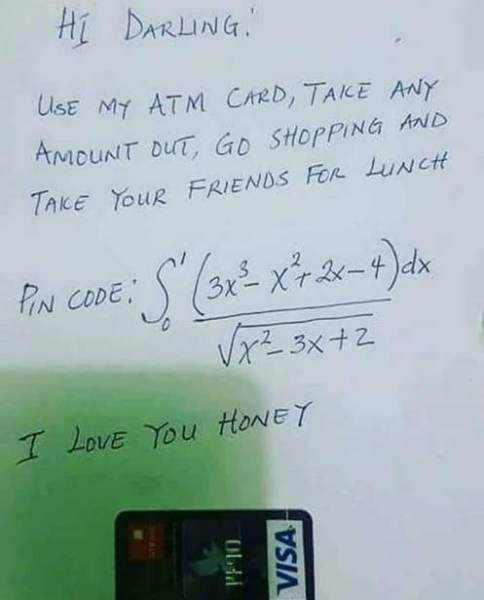 HI DARLING!
USE MY ATM CARD, TAKE ANY
AMOUNT OUT, GO SHOPPING AND
TAKE YOUR FRIENDS FOR LUNCH
PIN CODE: ∫₀¹ (3x³ - x² + 2x - 4)dx / √x² - 3x + 2
I LOVE YOU HONEY
VISA